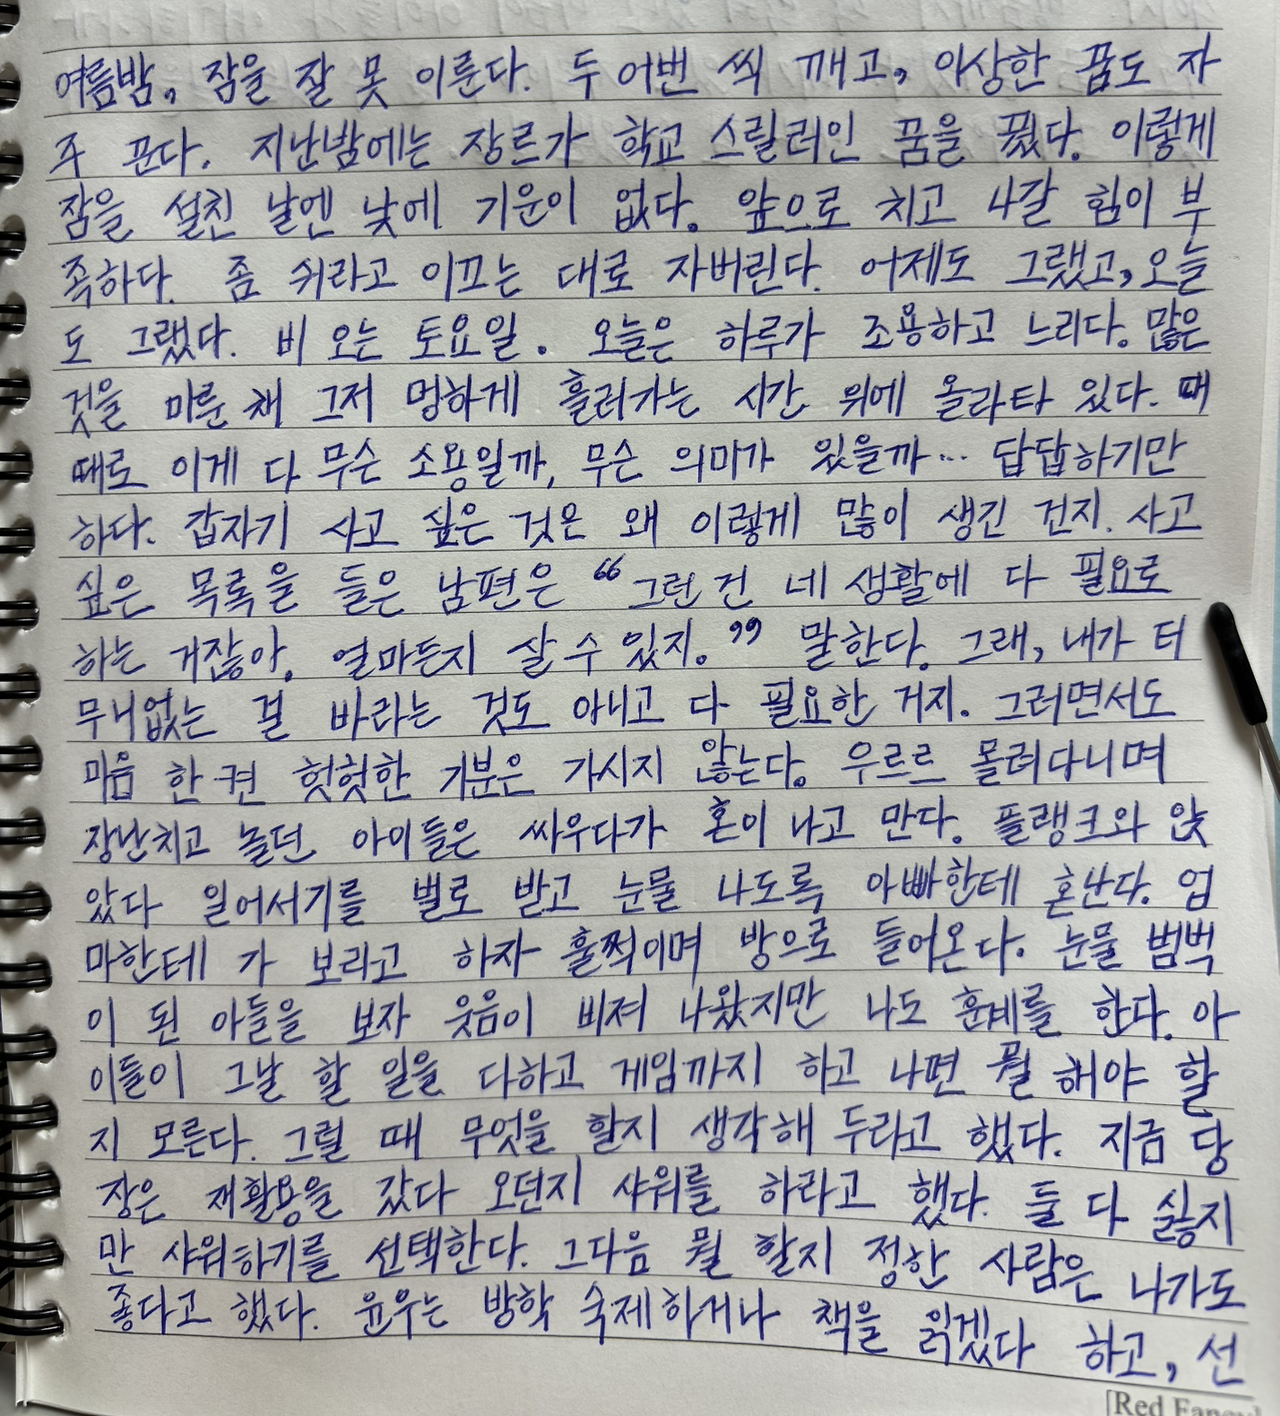 여름밤, 잠을 잘 못 이룬다. 두어번 씩 깨고, 이상한 꿈도 자
주 꾼다. 지난밤에는 장르가 학교 스릴러인 꿈을 꿨다. 이렇게
잠을 설친 날엔 낮에 기운이 없다. 앞으로 치고 나갈 힘이 부
족하다. 좀 쉬라고 이끄는 대로 자버린다. 어제도 그랬고, 오늘
도 그랬다. 비 오는 토요일. 오늘은 하루가 조용하고 느리다. 많은
것을 미룬 채 그저 멍하게 흘러가는 시간 위에 올라타 있다. 때
때로 이게 다 무슨 소용일까, 무슨 의미가 있을까… 답답하기만
하다. 갑자기 사고 싶은 것은 왜 이렇게 많이 생긴 건지. 사고
싶은 목록을 들은 남편은 “그런 건 네 생활에 다 필요로
하는 거잖아. 얼마든지 살 수 있지.” 말한다. 그래, 내가 터
무니없는 걸 바라는 것도 아니고 다 필요한 거지. 그러면서도
마음 한 켠 헛헛한 기분은 가시지 않는다. 우르르 몰려다니며
장난치고 놀던 아이들은 싸우다가 혼이 나고 만다. 플랭크와 앉
았다 일어서기를 벌로 받고 눈물 나도록 아빠한테 혼난다. 엄
마한테 가 보라고 하자 훌쩍이며 방으로 들어온다. 눈물 범벅
이 된 아들을 보자 웃음이 비져 나왔지만 나도 훈계를 한다. 아
이들이 그날 할 일을 다하고 게임까지 하고 나면 뭘 해야 할
지 모른다. 그럴 때 무엇을 할지 생각해 두라고 했다. 지금 당
장은 재활용을 갔다 오던지 샤워를 하라고 했다. 둘 다 싫지
만 샤워하기를 선택한다. 그다음 뭘 할지 정한 사람은 나가도
좋다고 했다. 윤우는 방학 숙제하거나 책을 읽겠다 하고, 선